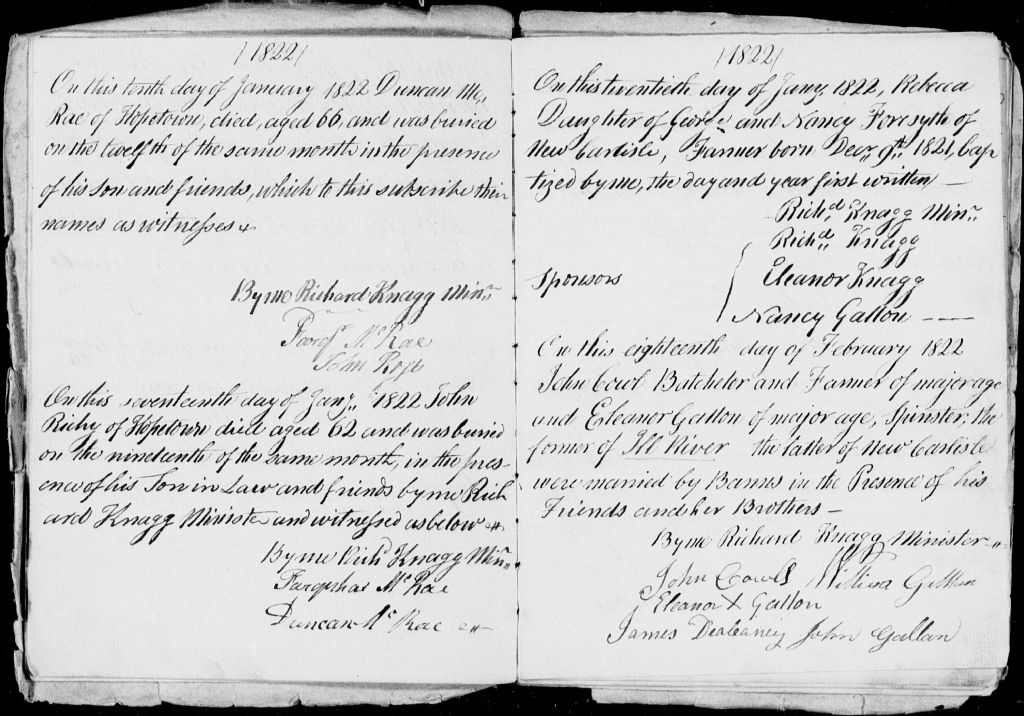 /1822/
On this tenth day of January 1822 Duncan Mc,,
Rae of Hopetown, died, aged 66, and was buried
on the twelfth of the same month in the presence
of his son and friends, which to this subscribe their
names as witnesses
By me Richard Knagg Minr
Farqr Mc Rae
John Ross
On this seventeenth day of Jany. 1822 John
of Hopetown died aged 62 and was buried
on the nineteenth of the same month, in the pres-
ence of his Son in Law and friends by me Rich
ard Knagg Minister and witnessed as below
By me Richd Knagg Minr
Farquhar Mc Rae
Duncan Mc Rae
/1822/
On this twentieth day of Jany 1822, Rebecca
Daughter of George and Nancy Forsyth of
New Carlisle, Farmer born Decr 9th 1821, bap
tized by me, the day and year first written
Richd Knagg Minr
Richd Knagg
Sponsors
Eleanor Knagg
Nancy Gallon
On this eighteenth day of February 1822
John Cowl Batchelor and Farmer of major age
and Eleanor Gallon of major age, Spinster, the
former of River the latter of New Carlisle
were married by Banns in the Presence of his
Friends and her Brothers
By me Richard Knagg Minister
John Cowls
Eleanor X Gallon
James John Gallan